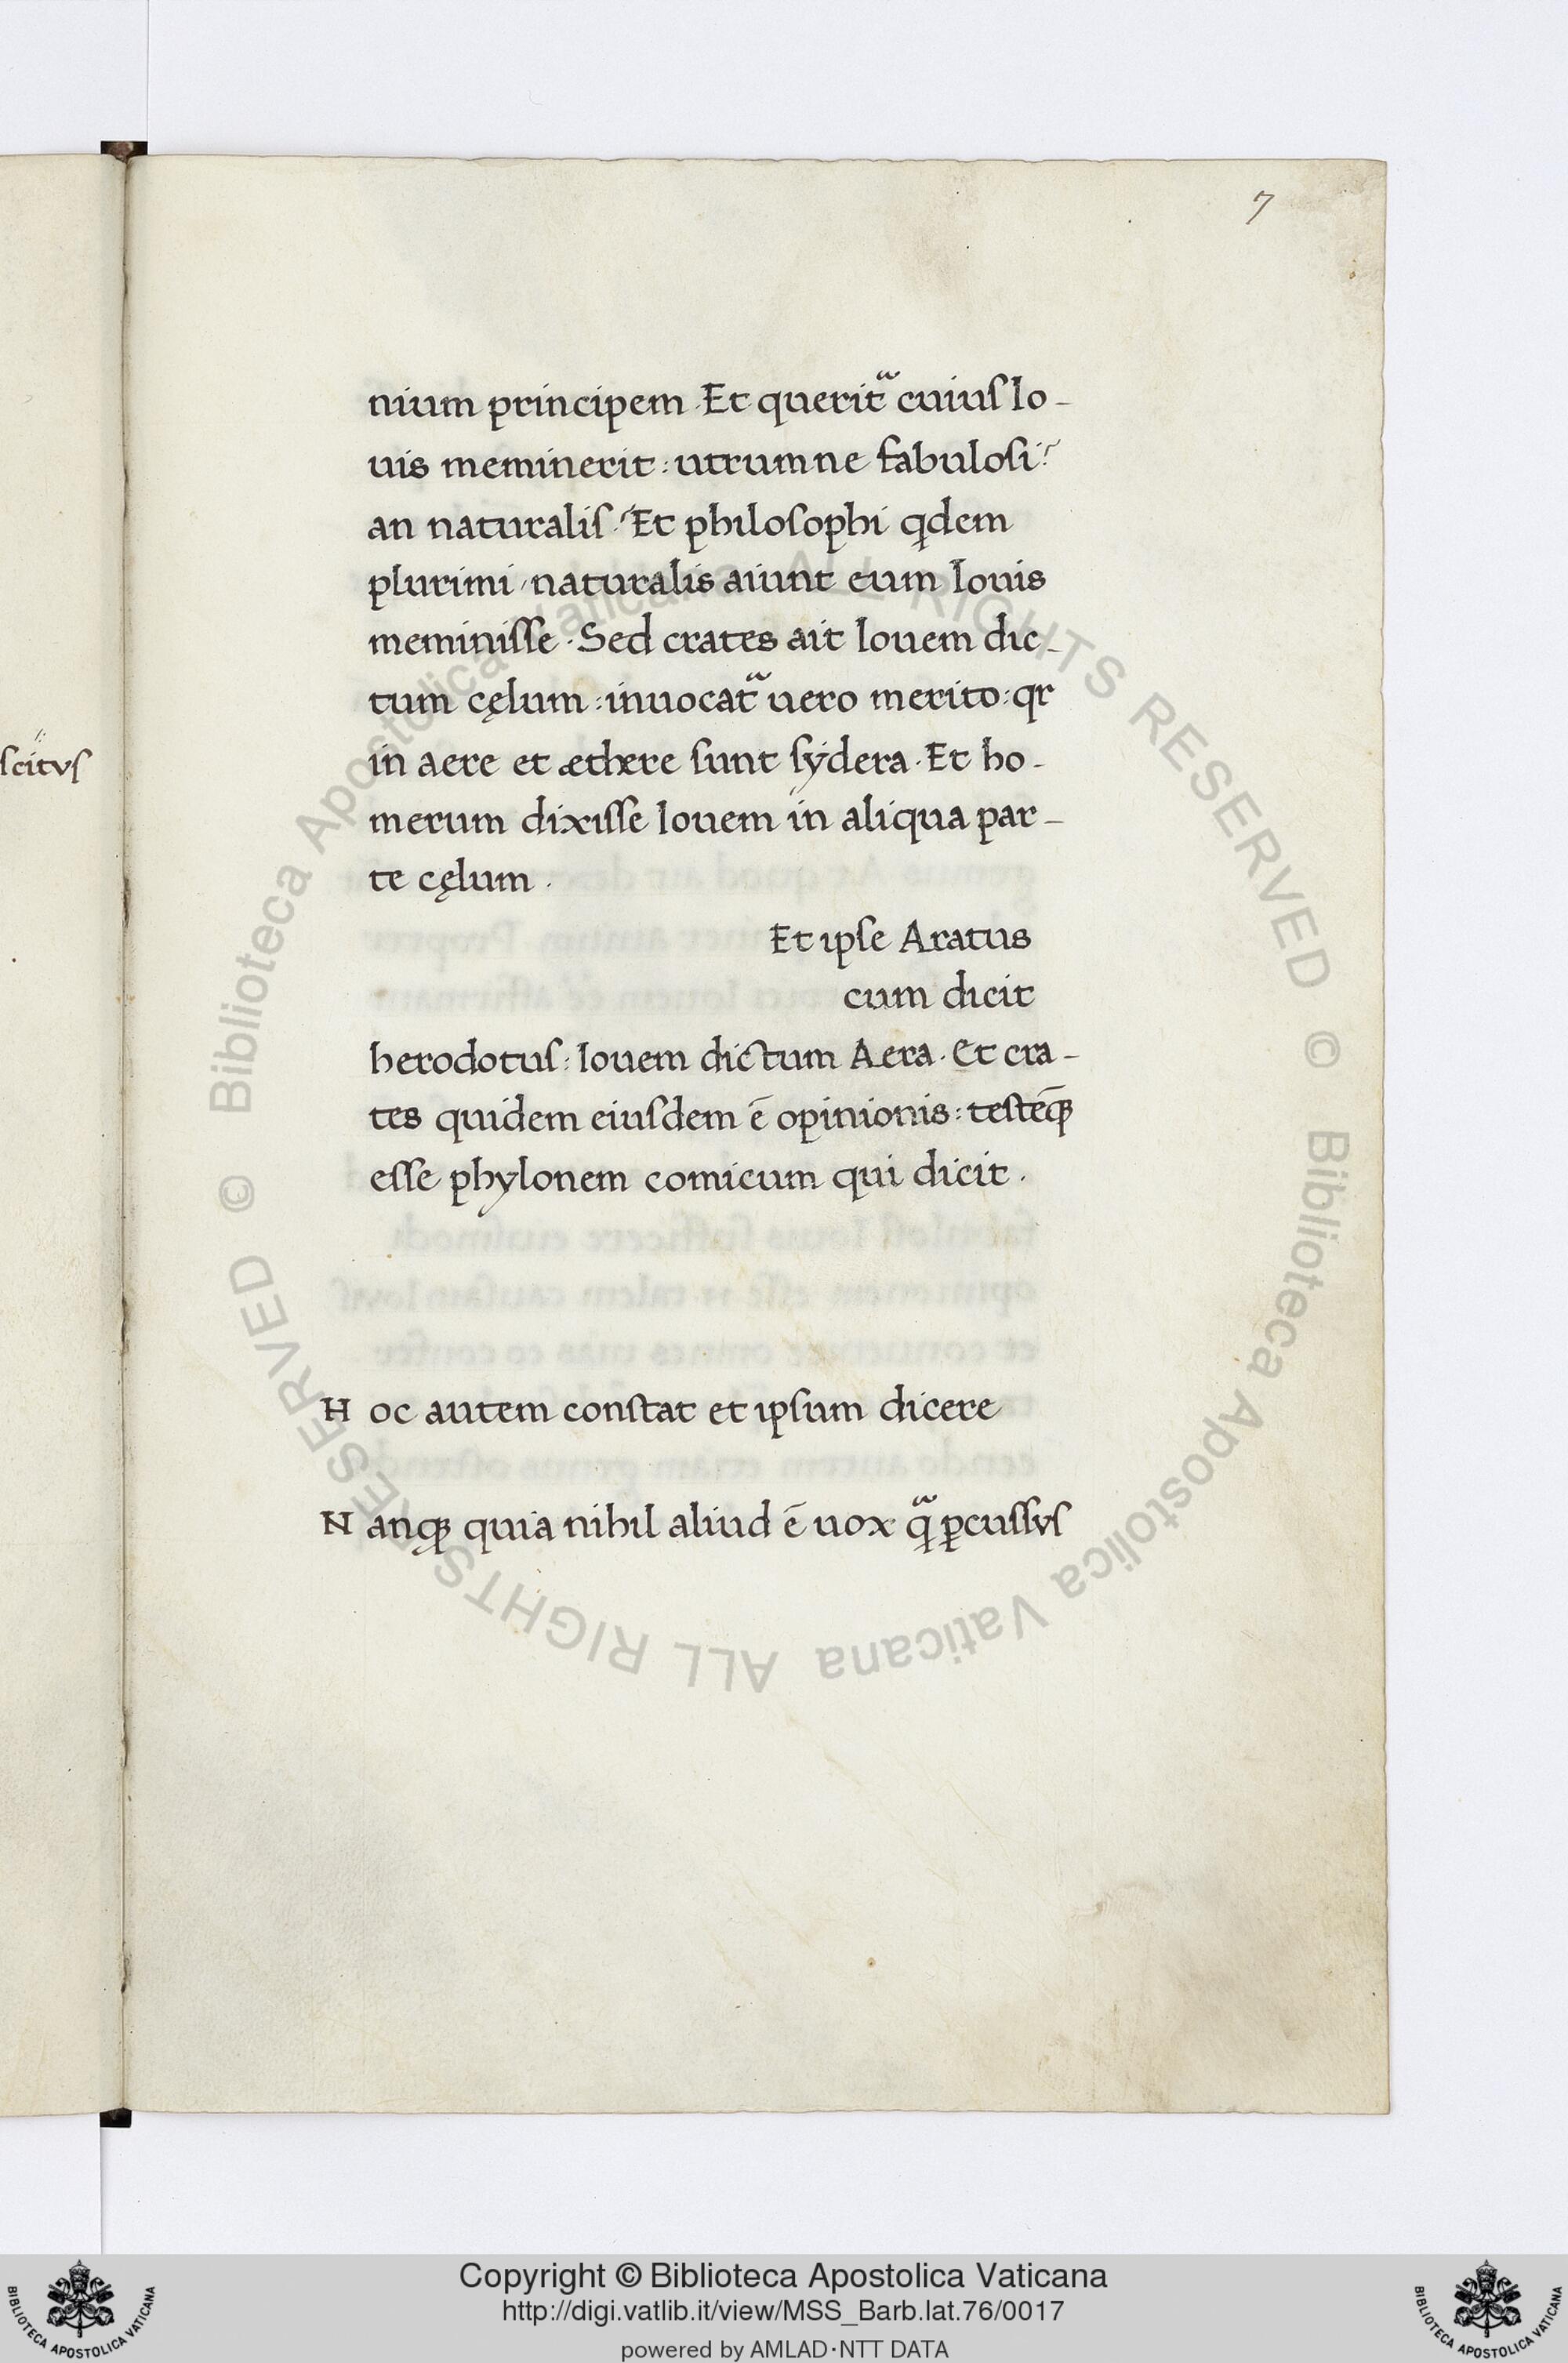 7
nium principem. Et queritᷓ cuiuſ Io-
uis meminerit: utrumne fabuloſi?
an naturaliſ? Et philoſophi qdem
plurimi, naturalis aiunt eum Iouis
meminiſſe. Sed crates ait Iouem dic-
tum cęlum: inuocatᷓ uero merito: qr
in aere et æthere ſunt ſẏdera. Et ho-
ſcitvſ
merum dixiſſe Iouem in aliqua par-
te cęlum.
Et ipſe Aratus
cum dicit
herodotuſ: Iouem dictum Aera. Et cra-
tes quidem eiuſdem ē opinionis: teſtēqꝫ
eſſe phylonem comicum qui dicit.
H oc autem conſtat et ipſum dicere
N anqꝫ quia nihil aliud ē uox qᷓ ꝑcuſſvſ
© Biblioteca Apostolica Vaticana ALL RIGHTS RESERVED
© Biblioteca Apostolica Vaticana ALL RIGHTS RESERVED
Copyright © Biblioteca Apostolica Vaticana
http://digi.vatlib.it/view/MSS_Barb.lat.76/0017
powered by AMLAD·NTT DATA
BIBLIOTECA APOSTOLICA VATICANA
BIBLIOTECA APOSTOLICA VATICANA